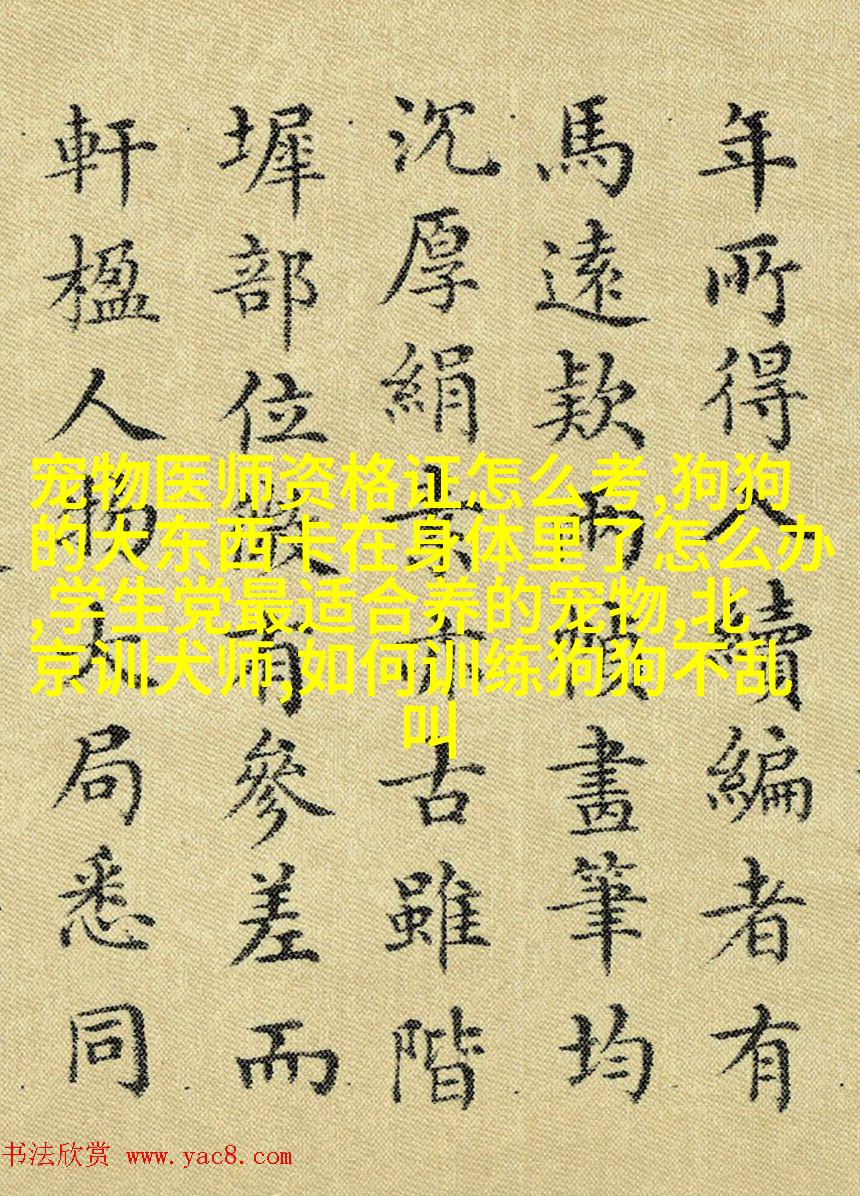 年所得入續編者有
馬遠款兩畫筆均
沉厚絹素亦古雖階
墀部位有參差而
軒楹人物大局悉同
宠物医师资格证怎么考,狗狗
的大东西卡在身体里了怎么办
,学生党最适合养的宠物,北
京训犬师,如何训练狗狗不乱
叫
书法欣赏 www.yac8.com